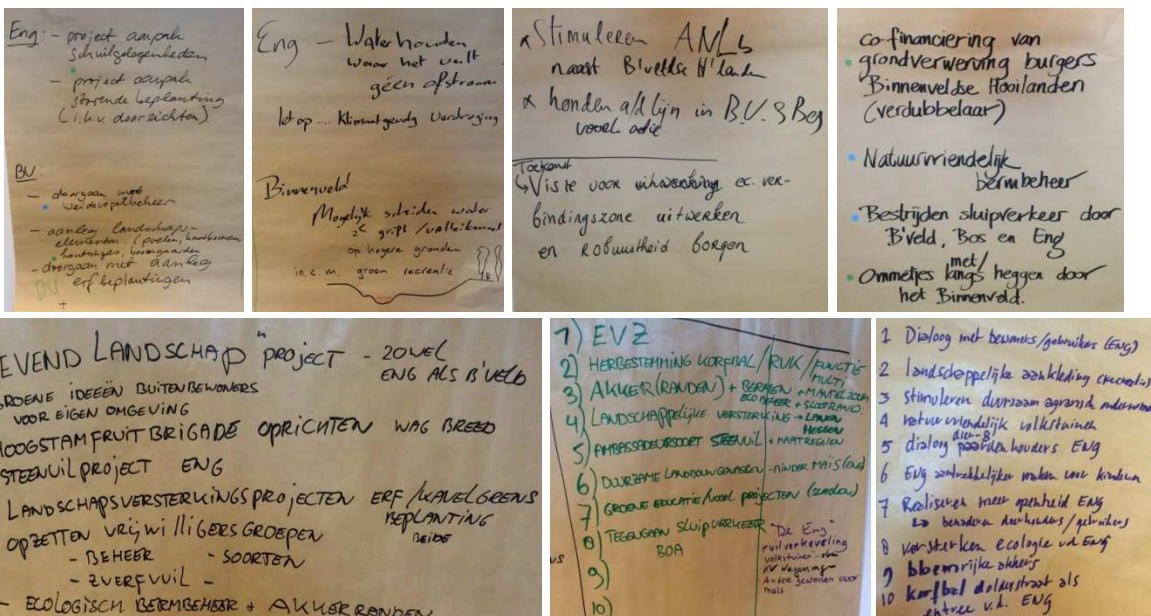 Eng: - project aanpak
schuilgelegenheden
- project aanpak
storende beplanting
(i.h.v. doorzichten)
BV:
- doorgaan met
weidevogelbeheer
- aanleg landschaps-
elementen. (poelen, knotbomen,
houtsingels, boomgaarden
- doorgaan met aanleg
BV erfbeplantingen
Eng - Water houden
waar het valt
géén afstroom
let op ... Klimaatgendg Verdroging
Binnenveld
Mogelijk scheiden water
grift / valleikanaal
op hogere gronden
i.n.c.m. groen recreatie
* Stimuleren ANLb
naast B'veldse H'landen
* honden a/d lijn in B.V. & Beg
voorl. actie
Toekomst
↳ Visie voor uitwerking ec. ver-
bindingszone uitwerken
en Robuustheid borgen
co-financiering van
grondverwerving burgers
Binnenveldse Hooilanden
(verdubbelaar)
Natuurvriendelijk
bermbeheer
Bestrijden sluipverkeer door
B'veld, Bos en Eng
met/
Ommetjes langs heggen door
het Binnenveld.
EVEND LANDSCHAP" PROJECT - ZOWEL
ENG ALS B'VELD
GROENE IDEEËN BUITENBEWONERS
VOOR EIGEN OMGEVING
HOOGSTAMFRUIT BRIGADE OPRICHTEN WAG BREED
STEENUILPROJECT ENG
LANDSCHAPSVERSTERKINGSPROJECTEN ERF/KAVELGRENS
BEPLANTING
BEIDE
OPZETTEN VRIJWILLIGERSGROEPEN
- BEHEER - SOORTEN
- ZWERFVUIL -
- ECOLOGISCH BERMBEHEER + AKKERRANDEN
1) EVZ
2) HERBESTEMMING KORFBAL/RUK/FUNCTIE
MULTI
3) AKKER(RANDEN) + BERMEN + MANTELZOOM
ECOBEHEER + SLOOTRAND
4) LANDSCHAPPELIJKE VERSTERKING → LANEN
HEGGEN
5) AMBASSADEURSOORT STEENUIL + MAATREGELEN
6) DUURZAME LANDBOUWGEWASSEN - MINDER MAÏS (ENG)
7) GROENE EDUCATIE/VOORL PROJECTEN (scholen)
8) TEGENGAAN SLUIPVERKEER
BOA
9)
10)
"De Eng"
ruilverkaveling
volkstuinen
KV Wagening
Andere gewassen voor
mais
1 Dialoog met bewoners/gebruikers (ENG)
2 landschappelijke aankleding (recreatie)
3 stimuleren duurzaam agrarisch
4 natuurvriendelijk volkstuinen
dier-&
5 dialoog paardenhouders ENG
6 ENG aantrekkelijker maken voor kinderen
7 Realiseren meer openheid ENG
↳ benaderen deelhouders/gebruikers
8 versterken ecologie vd ENG
9 bloemrijke akkers
10 korfbal dolderstraat als
entree v.d. ENG